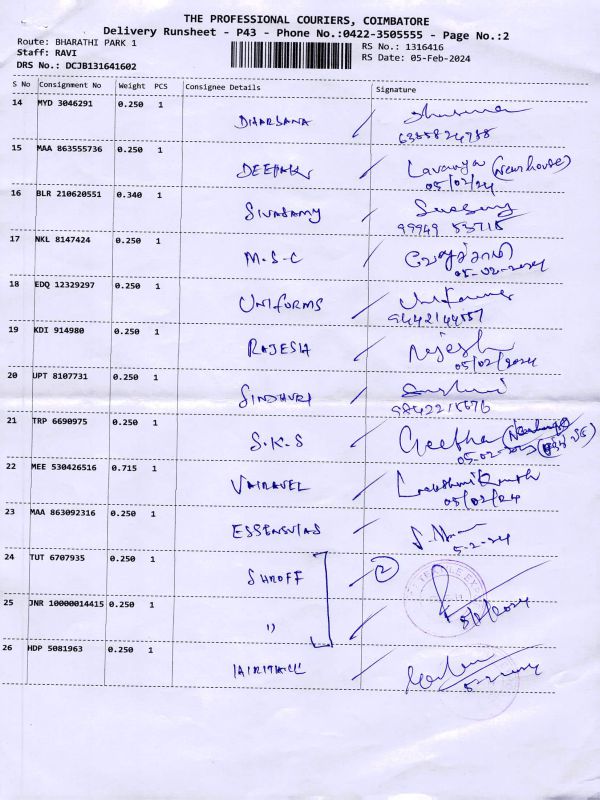 THE PROFESSIONAL COURIERS, COIMBATORE
Delivery Runsheet - P43 - Phone No.:0422-3505555 - Page No.:2
Route: BHARATHI PARK 1
Staff: RAVI
DRS No.: DCJB131641602
RS No.: 1316416
RS Date: 05-Feb-2024
S No Consignment No Weight PCS Consignee Details Signature
14 MYD 3046291 0.250 1 DHARSANA
15 MAA 863555736 0.250 1 DEEPAK Lavanya (New house)
05/02/24
16 BLR 210620551 0.340 1 SIVASAMY
99949 53715
17 NKL 8147424 0.250 1 M.S.C
05-02-2024
18 EDQ 12329297 0.250 1 UNIFORMS
9442144557
19 KDI 914980 0.250 1 RAJESH Rajesh
05/02/2024
20 UPT 8107731 0.250 1 SINDHURI
9842215676
21 TRP 6690975 0.250 1 S.K.S Geetha
22 MEE 530426516 0.715 1 VAIRAVEL
05/02/24
23 MAA 863092316 0.250 1
5-2-24
24 TUT 6707935 0.250 1 SHROFF 2
25 JNR 10000014415 0.250 1 "
5/2/2024
26 HDP 5081963 0.250 1